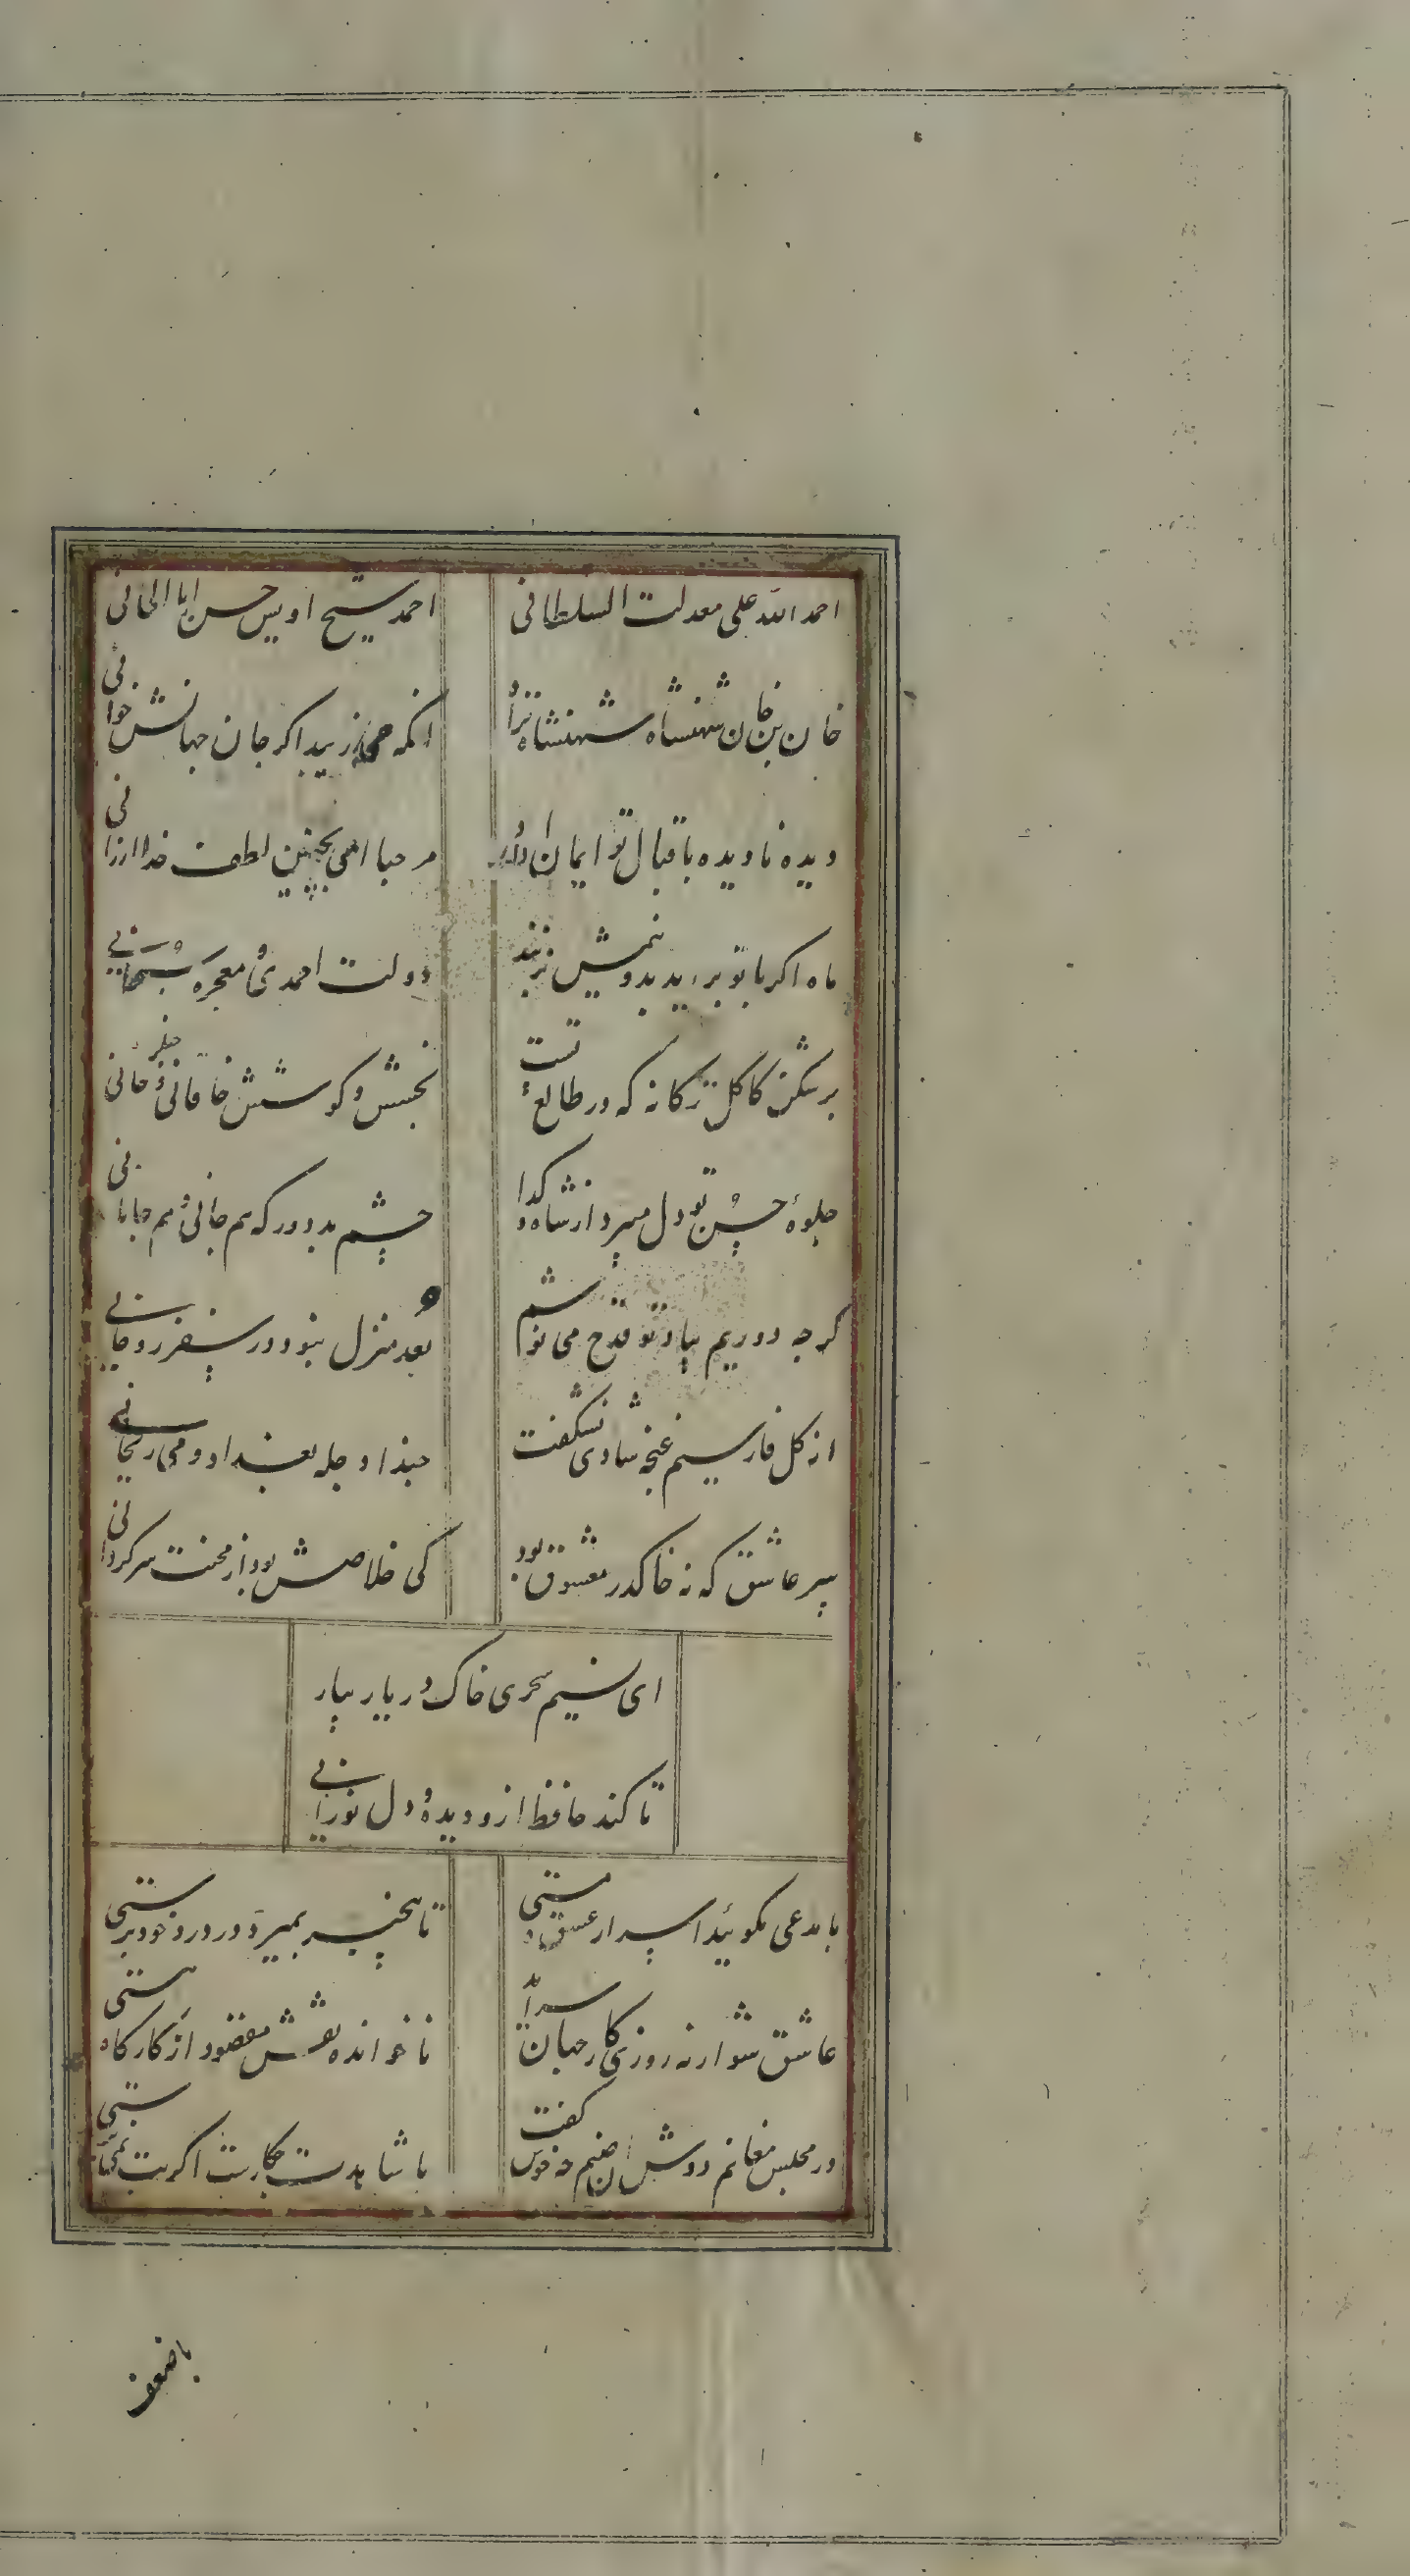 احمد الله علی معدلت السلطانی
احمد شیخ اویس حسن ایلخانی
خان بن خان شهنشاه شهنشاه نژاد
انکه میزیبد اکر جان جهانش خوانی
دیده نادیده باقبال تو ایمان اورد
مرحبا ای بچنین لطف خدا ارزانی
ماه اکر با تو براید بدو نیمش بزنند
دولت احمدی و معجزه سبحانی
برشکن کاکل ترکانه که در طالع تست
بخشش و کوشش خاقانی و خانی
جلوهٔ حسن تو دل میبرد از شاه و کدا
چشم بد دور که هم جانی و هم جانانی
کرچه دوریم بیاد تو قدح می نوشیم
بعد منزل نبود در سفر روحانی
از کل فارسیم غنچه شادی نشکفت
حبذا دجله بغداد و می ریحانی
سر عاشق که نه خاک در معشوق بود
کی خلاصش بود از محنت سرکردانی
ای نسیم سحری خاک در یار بیار
تا کند حافظ ازو دیدهٔ دل نورانی
با مدعی مکوئید اسرار عشق و مستی
تا بیخبر بمیرد در درد خودپرستی
عاشق شو ارنه روزی کار جهان سراید
ناخوانده نقش مقصود از کارکاه هستی
در مجلس مغانم دوش ان صنم چه خوش کفت
با کافرت چکارست اکر بت نمی‌پرستی
با ضعف